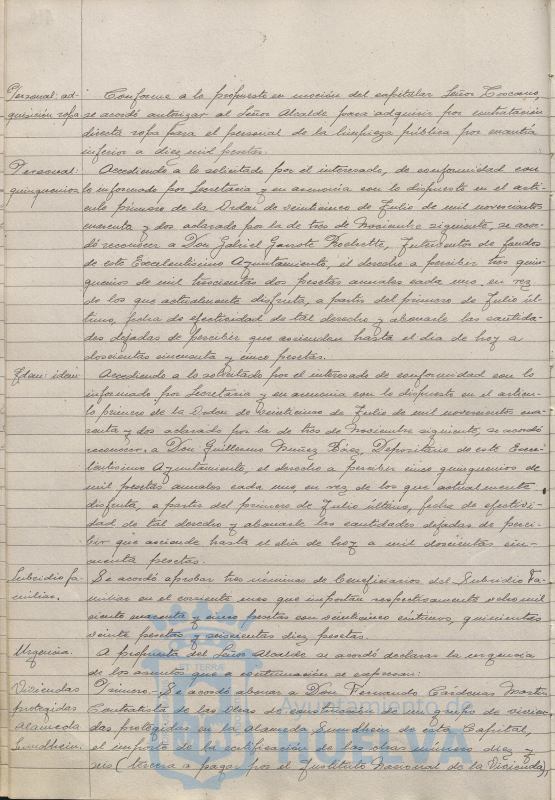 Personal: ad-
quisición ropa
Conforme a lo propuesto en moción del capitular Señor Toscano,
se acordó autorizar al Señor Alcalde para adquirir por contratación
directa ropa para el personal de la limpieza pública por cuantía
inferior a diez mil pesetas.
Personal:
quinquenios
Accediendo a lo solicitado por el interesado, de conformidad con
lo informado por Secretaría y en armonía con lo dispuesto en el artí-
culo primero de la Orden de veinticinco de Julio de mil novecientos
cuarenta y dos aclarado por la de tres de Noviembre siguiente, se acor-
dó reconocer a Don Gabriel Garrote Interventor de fondos
de este Excelentísimo Ayuntamiento, el derecho a percibir tres quin-
quenios de mil trescientas dos pesetas anuales cada uno, en vez
de los que actualmente disfruta, a partir del primero de Julio úl-
timo, fecha de efectividad de tal derecho y abonarle las cantida-
des dejadas de percibir que ascienden hasta el día de hoy a
doscientas cincuenta y cinco pesetas.
Idem: idem
Accediendo a lo solicitado por el interesado de conformidad con lo
informado por Secretaría y en armonía con lo dispuesto en el artícu-
lo primero de la Orden de veinticinco de Julio de mil novecientos cua-
renta y dos aclarado por la de tres de Noviembre siguiente, se acordó
reconocer a Don Guillermo Núñez Báez, Depositario de este Exce-
lentísimo Ayuntamiento, el derecho a percibir cinco quinquenios de
mil pesetas anuales cada uno, en vez de los que actualmente
disfruta, a partir del primero de Julio último, fecha de efectivi-
dad de tal derecho y abonarle las cantidades dejadas de perci-
bir que asciende hasta el día de hoy a mil doscientas cin-
cuenta pesetas.
Subsidio fa-
miliar.
Se acordó aprobar tres nóminas de beneficiarios del Subsidio Fa-
miliar en el corriente mes que importan respectivamente ocho mil
ciento cuarenta y cinco pesetas con veinticinco céntimos, quinientas
veinte pesetas y seiscientas diez pesetas.
Urgencia.
A propuesta del Señor Alcalde se acordó declarar la urgencia
de los asuntos que a continuación se expresan:
Viviendas
protegidas
Alameda
Sundheim.
Primero.- Se acordó abonar a Don Fernando Cárdenas
Contratista de las obras de construcción de un grupo de vivien-
das protegidas en la Alameda Sundheim de esta Capital,
el importe de la certificación de las obras número diez y
seis (tercera a pagar por el Instituto Nacional de la Vivienda),
ET TERRA
Ayuntamiento de